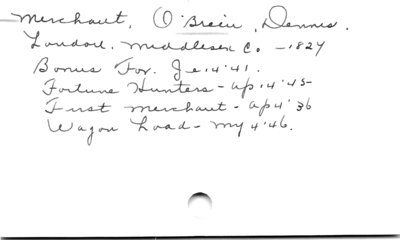 Merchant, O'Brein, Dennis.
London, Middlesex Co - 1824
Bonus For. Je 14 '41.
Fortune Hunters - Ap 14 '45
First Merchant - Ap 4 '36
Wagon Load - My 4 '46.